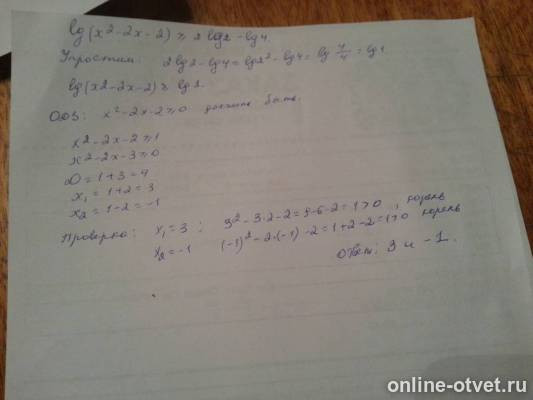 lg(x²-2x-2) ≥ 2 lg2 - lg4.
Упростим: 2 lg2 - lg4 = lg2² - lg4 = lg 4/4 = lg1
lg(x2-2x-2) ≥ lg1.
ОДЗ: x²-2x-2≥0 должно быть.
x²-2x-2≥1
x²-2x-3≥0
D=1+3=4
x₁=1+2=3
x₂=1-2=-1
Проверка: x₁=3; 3²-3·2-2=9-6-2=1>0, корень
x₂=-1 (-1)²-2·(-1)-2=1+2-2=1>0 корень
Ответ: 3 и -1.
online-otvet.ru